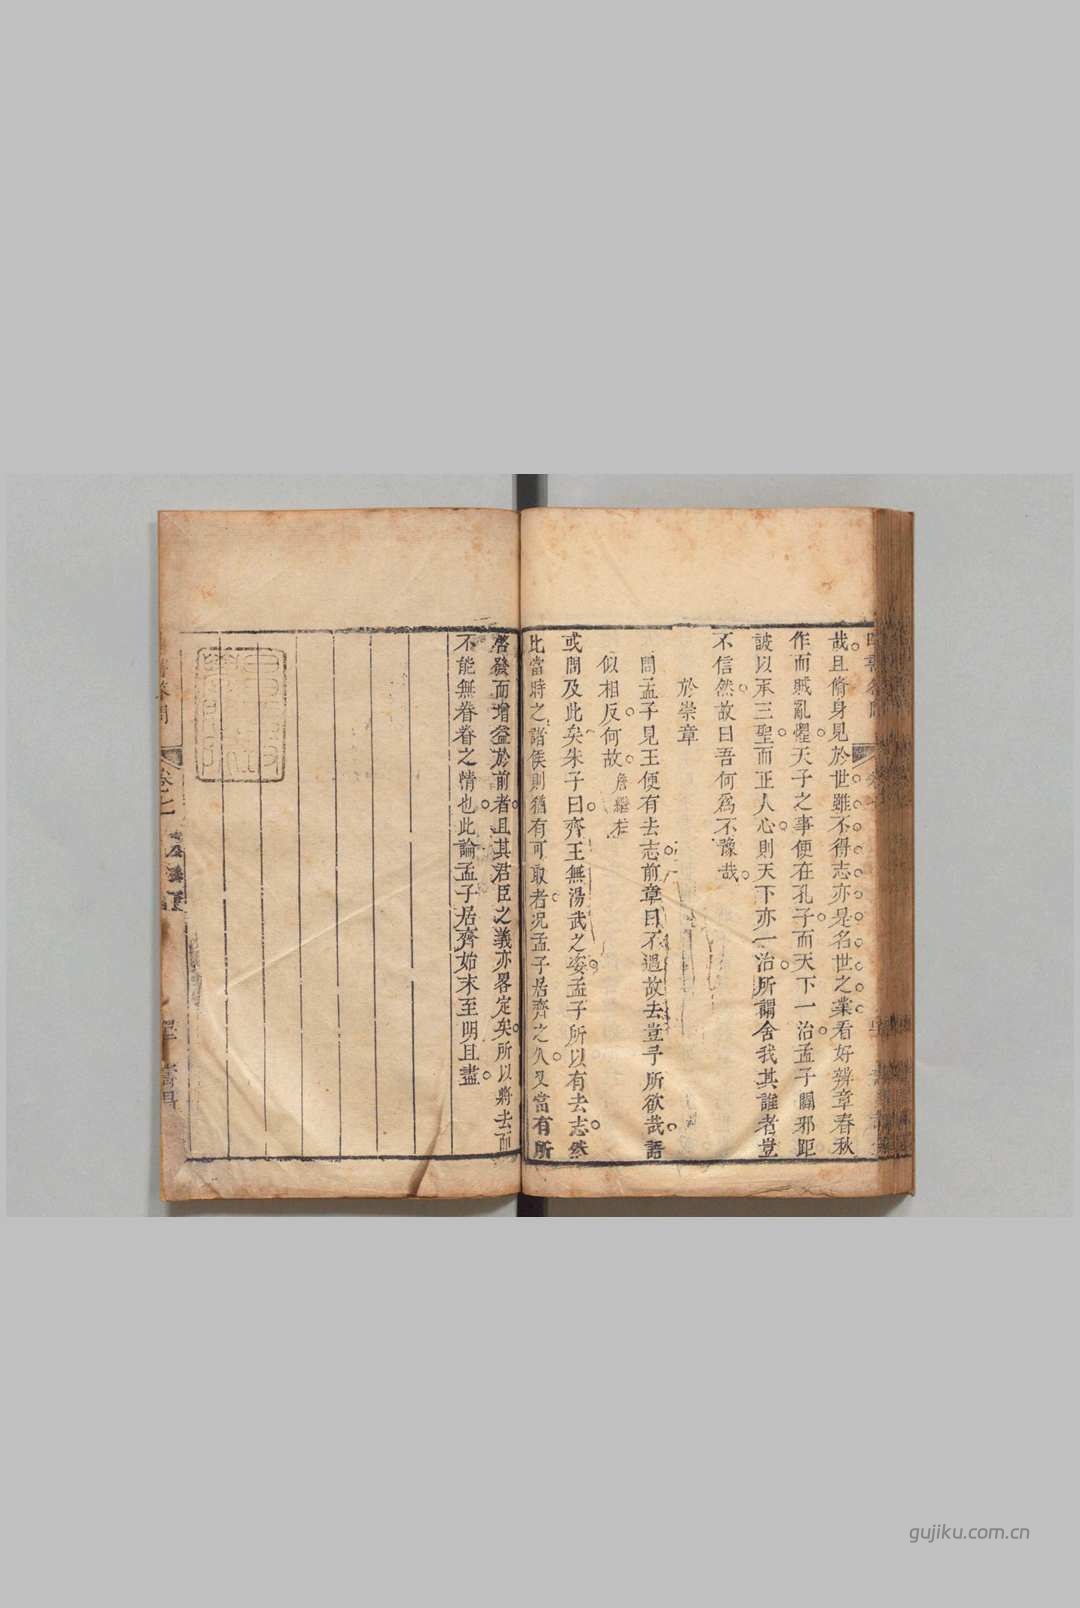 哉且脩身見於世雖不得志亦是名世之業看好辨章春秋
作而賊亂懼天子之事便在孔子而天下一治孟子闢邪距
詖以承三聖而正人心則天下亦一治所謂舍我其誰者豈
不信然故曰吾何爲不豫哉
於崇章
問孟子見王便有去志前章曰不遇故去豈予所欲哉語
似相反何故
或問及此矣朱子曰齊王無湯武之姿孟子所以有去志然
比當時之諸侯則猶有可取者况孟子居齊之久又當有所
啓發而增益於前者且其君臣之義亦畧定矣所以將去而
不能無眷眷之情也此論孟子居齊始末至明且盡
卷七
gujiku.com.cn